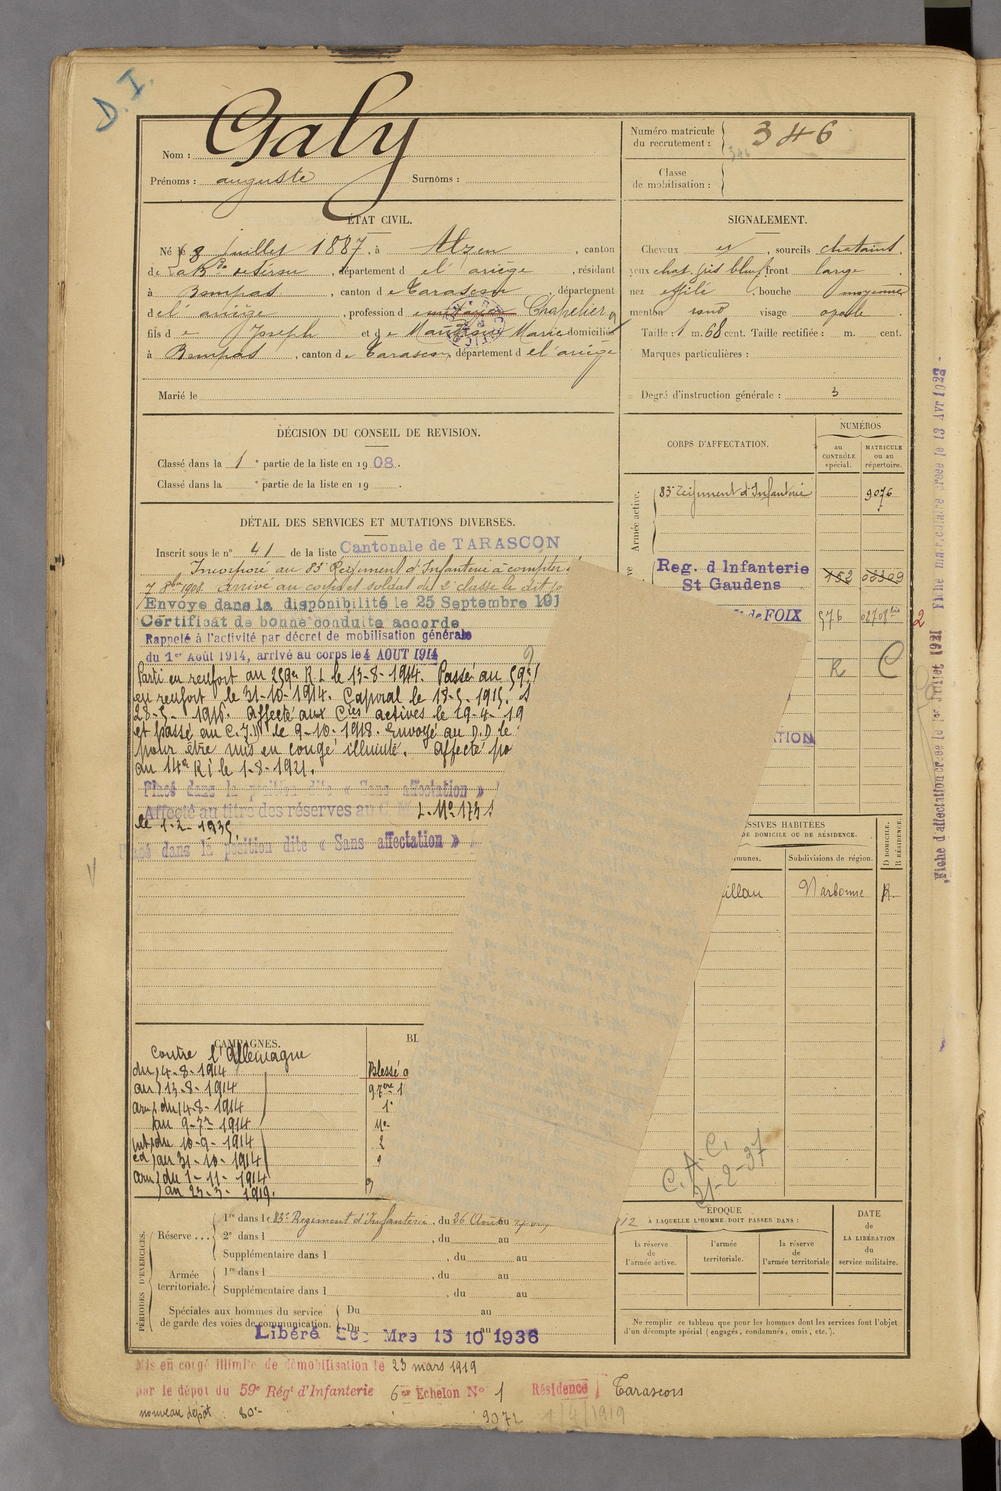 D.I.
Nom : Galy
Prénoms : auguste Surnoms :
Numéro matricule du recrutement : 346
346
Classe de mobilisation :
ÉTAT CIVIL.
Né le 8 Juillet 1887, à Alzen, canton
de La Bde de Sérou, département d el'ariège, résidant
à Bompas, canton d e Tarascon, département
d el'ariège, profession d Chapelier
fils d e Joseph et d e Marie domiciliés
à Bompas, canton d e Tarascon, département d el'ariège
Marié le
SIGNALEMENT.
Cheveux et, sourcils chatains,
yeux chat. gris bleu, front large
nez effilé, bouche moyenne
menton rond visage ovale.
Taille : 1 m. 68 cent. Taille rectifiée : m. cent.
Marques particulières :
Degré d'instruction générale : 3
DÉCISION DU CONSEIL DE REVISION.
Classé dans la 1e partie de la liste en 1908.
Classé dans la e partie de la liste en 19
CORPS D'AFFECTATION.
NUMÉROS
au CONTRÔLE spécial.
MATRICULE ou au répertoire.
Armée active.
83e Régiment d'Infanterie 9076
Reg. d Infanterie
St Gaudens 152
de FOIX 576
R C
2
TION
DÉTAIL DES SERVICES ET MUTATIONS DIVERSES.
Inscrit sous le n° 41 de la liste Cantonale de TARASCON
Incorporé au 83e Régiment d'Infanterie à compter
7 8bre 1908. arrivé au corps et soldat de 2e classe le dit jo
Envoyé dans la disponibilité le 25 Septembre 191
Certificat de bonne conduite accordé
Rappelé à l'activité par décret de mobilisation générale
du 1er Août 1914, arrivé au corps le 4 AOUT 1914
Parti en renfort au 259e R.I. le 13-8-1914. Passé au 59e
en renfort le 31-10-1914. Caporal le 18-5-1915.
28-5-1916. Affecté aux Cies actives le 29-4-19
et passé au C.I.D. le 9-10-1918. Envoyé au D.D. le
pour être mis en congé illimité. Affecté po
au 14e R.I. le 1-8-1921.
Placé dans la position dite « Sans affectation »
Affecté au titre des réserves au C.M. L. Mo 173
le 1-2-1935.
Placé dans la position dite « Sans affectation »
SSIVES HABITÉES
DE DOMICILE OU DE RÉSIDENCE.
munes. Subdivisions de région. D DOMICILE. R RÉSIDENCE.
illau Narbonne R.
CAMPAGNES.
Contre l'Allemagne
du 4-8-1914
au 13-8-1914
du 14-8-1914
au 9-7re 1914
du 10-9-1914
au 31-10-1914
du 1-11-1914
au 23-3-1919.
BL
Blessé a
C.A.C.
21-2-37
PÉRIODES D'EXERCICES.
Réserve ... 1re dans l e 83e Régiment d'Infanterie, du 26 Août au
2e dans l , du au
Supplémentaire dans l , du au
Armée territoriale. 1re dans l , du au
Supplémentaire dans l , du au
Spéciales aux hommes du service de garde des voies de communication. Du au
Du au
Libéré Mre 15 10 1936
ÉPOQUE
À LAQUELLE L'HOMME DOIT PASSER DANS :
la réserve de l'armée active.
l'armée territoriale.
la réserve de l'armée territoriale
DATE DE LA LIBÉRATION du service militaire.
Ne remplir ce tableau que pour les hommes dont les services font l'objet
d'un décompte spécial (engagés, condamnés, omis, etc.).
Mis en congé illimité de démobilisation le 23 mars 1919
par le dépôt du 59e Régt d'Infanterie 6er Echelon N° 1 Résidence Tarascon
nouveau dépôt : 80e
9072 1/4/1919
Fiche d'affectation créée le 1er Juillet 1921 Fiche matriculaire créée le 13 Avr 1922